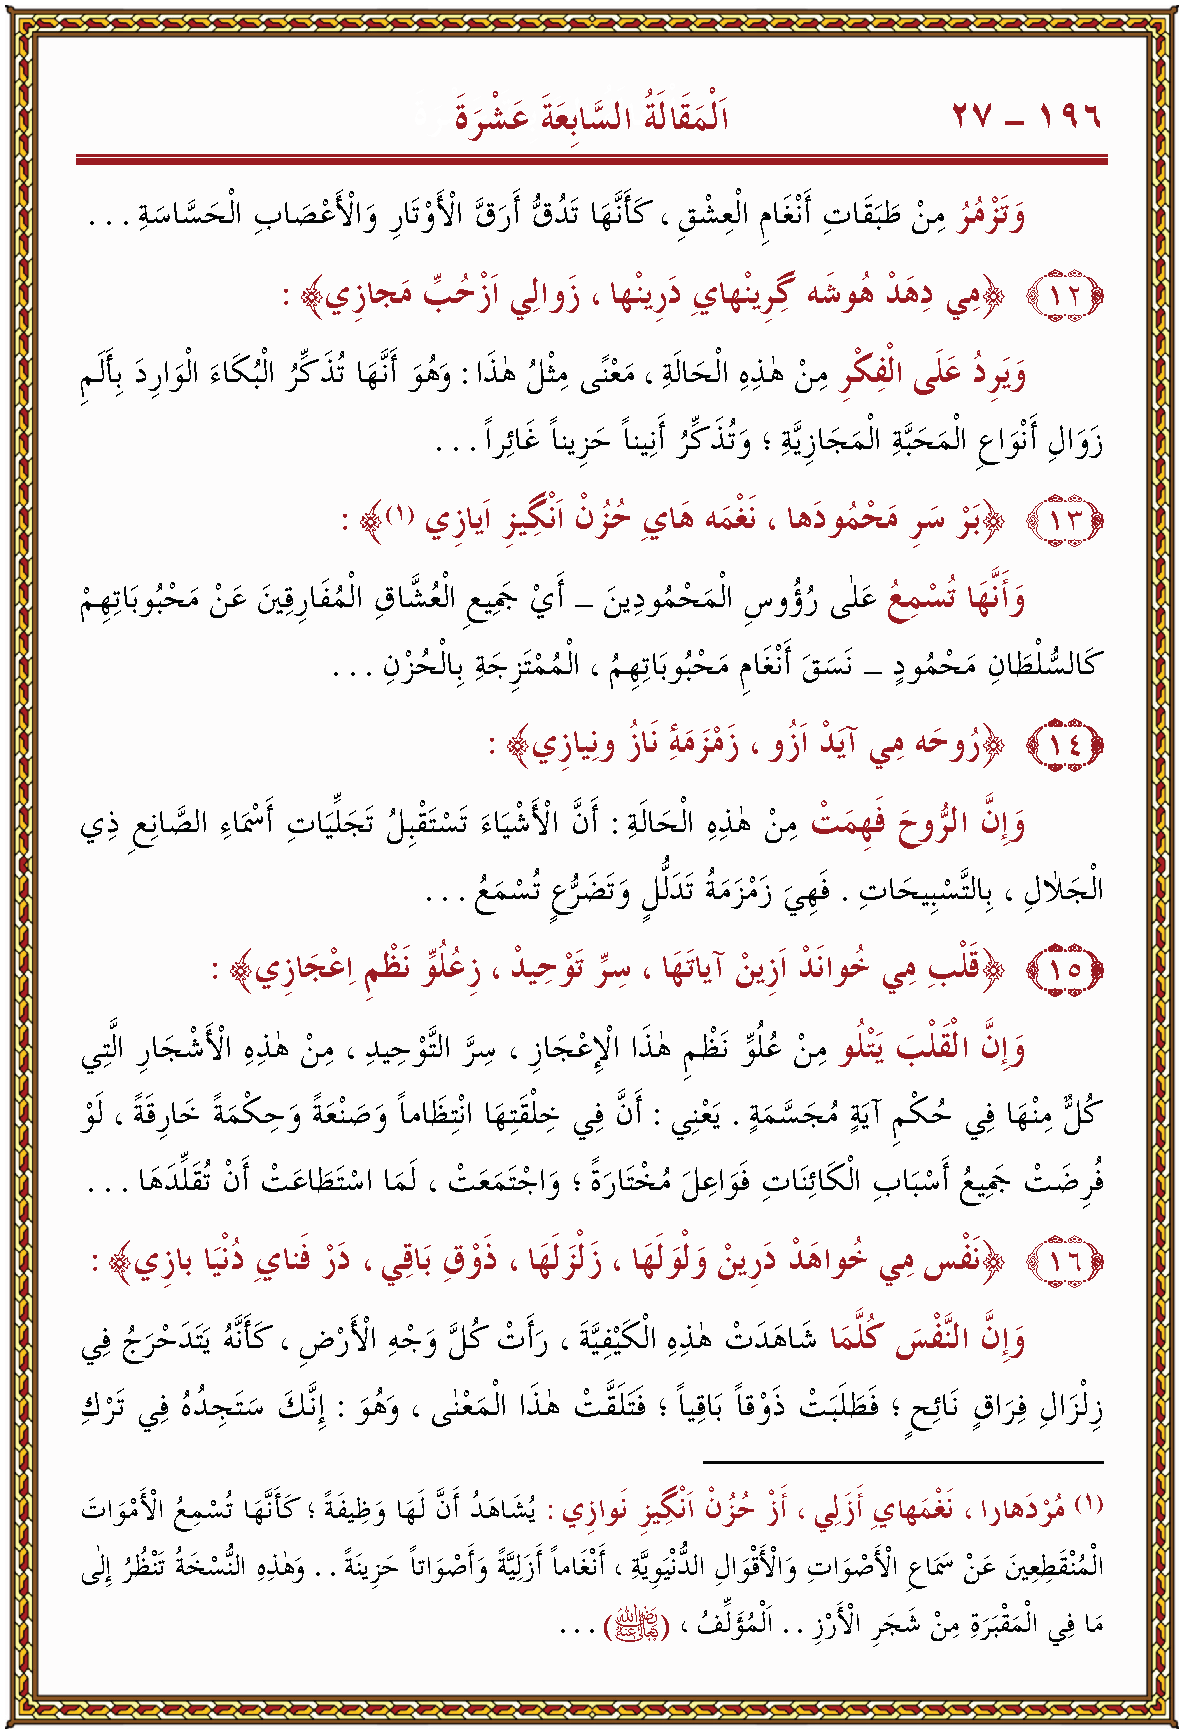 ١٩٦ ـ ٢٧ اَلْمَقَالَةُ السَّابِعَةَ عَشْرَةَ
وَتَزْمُرُ مِنْ طَبَقَاتِ أَنْغَامِ الْعِشْقِ ، كَأَنَّهَا تَدُقُّ أَرَقَّ الْأَوْتَارِ وَالْأَعْصَابِ الْحَسَّاسَةِ . . .
﴿١٢﴾ ﴿مِي دِهَدْ هُوشَه گِرِينْهَايِ دَرِينْهَا ، زَوَالِي اَزْحُبِّ مَجَازِي﴾ :
وَيَرِدُ عَلَى الْفِكْرِ مِنْ هٰذِهِ الْحَالَةِ ، مَعْنًى مِثْلُ هٰذَا : وَهُوَ أَنَّهَا تُذَكِّرُ الْبُكَاءَ الْوَارِدَ بِأَلَمِ
زَوَالِ أَنْوَاعِ الْمَحَبَّةِ الْمَجَازِيَّةِ ؛ وَتُذَكِّرُ أَنِيناً حَزِيناً غَائِراً . . .
﴿١٣﴾ ﴿بَرْ سَرِ مَحْمُودهَا ، نَغْمَه هَايِ حُزُنْ اَنْگِيزِ اَيَازِي (١)﴾ :
وَأَنَّهَا تُسْمِعُ عَلٰى رُؤُوسِ الْمَحْمُودِينَ ـ أَيْ جَمِيعِ الْعُشَّاقِ الْمُفَارِقِينَ عَنْ مَحْبُوبَاتِهِمْ
كَالسُّلْطَانِ مَحْمُودٍ ـ نَسَقَ أَنْغَامِ مَحْبُوبَاتِهِمُ ، الْمُمْتَزِجَةِ بِالْحُزْنِ . . .
﴿١٤﴾ ﴿رُوحَه مِي آيَدْ اُزو ، زَمْزَمَهٔ نَازُ ونِيَازِي﴾ :
وَإِنَّ الرُّوحَ فَهِمَتْ مِنْ هٰذِهِ الْحَالَةِ : أَنَّ الْأَشْيَاءَ تَسْتَقْبِلُ تَجَلِّيَاتِ أَسْمَاءِ الصَّانِعِ ذِي
الْجَلَالِ ، بِالتَّسْبِيحَاتِ . فَهِيَ زَمْزَمَةُ تَدَلُّلٍ وَتَضَرُّعٍ تُسْمَعُ . . .
﴿١٥﴾ ﴿قَلْبِ مِي خُوانَدْ اَزِينْ آيَاتَهَا ، سِرِّ تَوْحِيدْ ، زِعُلُوِّ نَظْمِ اِعْجَازِي﴾ :
وَإِنَّ الْقَلْبَ يَتْلُو مِنْ عُلُوِّ نَظْمِ هٰذَا الْإِعْجَازِ ، سِرَّ التَّوْحِيدِ ، مِنْ هٰذِهِ الْأَشْجَارِ الَّتِي
كُلٌّ مِنْهَا فِي حُكْمِ آيَةٍ مُجَسَّمَةٍ . يَعْنِي : أَنَّ فِي خِلْقَتِهَا انْتِظَاماً وَصَنْعَةً وَحِكْمَةً خَارِقَةً ، لَوْ
فُرِضَتْ جَمِيعُ أَسْبَابِ الْكَائِنَاتِ فَوَاعِلَ مُخْتَارَةً ؛ وَاجْتَمَعَتْ ، لَمَا اسْتَطَاعَتْ أَنْ تُقَلِّدَهَا . . .
﴿١٦﴾ ﴿نَفْس مِي خُواهَدْ دَرِينْ وَلْوَلَهَا ، زَلْزَلَهَا ، ذَوْقِ بَاقِي ، دَرْ فَنايِ دُنْيَا بازِي﴾ :
وَإِنَّ النَّفْسَ كُلَّمَا شَاهَدَتْ هٰذِهِ الْكَيْفِيَّةَ ، رَأَتْ كُلَّ وَجْهِ الْأَرْضِ ، كَأَنَّهُ يَتَدَحْرَجُ فِي
زِلْزَالِ فِرَاقٍ نَائِحٍ ؛ فَطَلَبَتْ ذَوْقاً بَاقِياً ؛ فَتَلَقَّتْ هٰذَا الْمَعْنٰى ، وَهُوَ : إِنَّكَ سَتَجِدُهُ فِي تَرْكِ
(١) مُرْدَهَارا ، نَغْمَهايِ أَزَلِي ، أَزْ حُزُنْ اَنْگِيزِ نَوازِي : يُشَاهَدُ أَنَّ لَهَا وَظِيفَةً ؛ كَأَنَّهَا تُسْمِعُ الْأَمْوَاتَ
الْمُنْقَطِعِينَ عَنْ سَمَاعِ الْأَصْوَاتِ وَالْأَقْوَالِ الدُّنْيَوِيَّةِ ، أَنْغَاماً أَزَلِيَّةً وَأَصْوَاتاً حَزِينَةً . . وَهٰذِهِ النُّسْخَةُ تَنْظُرُ إِلَى
مَا فِي الْمَقْبَرَةِ مِنْ شَجَرِ الْأَرْزِ . . الْمُؤَلِّفُ ، (رَضِيَ اللهُ تَعَالٰى عَنْهُ) . . .